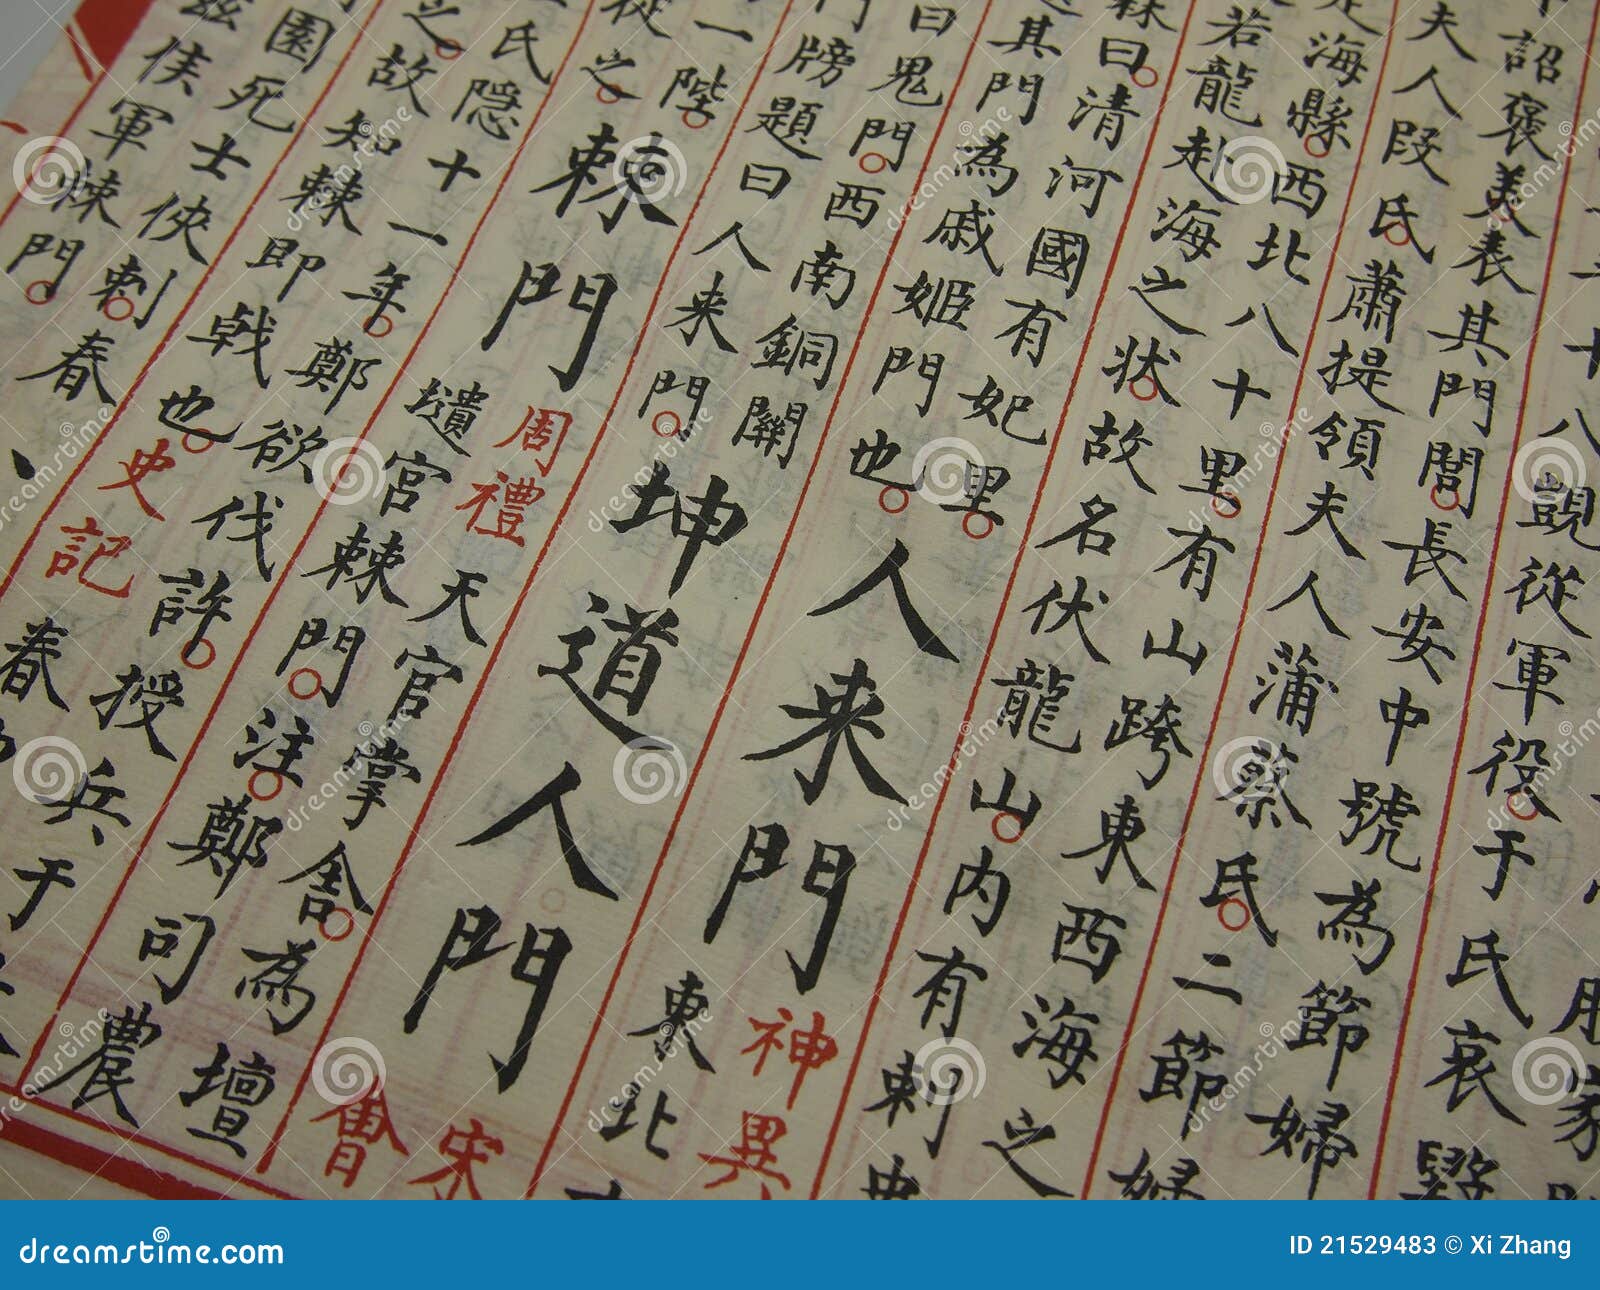 十八覬從軍役于氏哀毀
詔褒美表其門閭長安中號為節婦
夫人段氏蕭提領夫人蒲蔡氏二節婦
海縣西北八十里有山跨東西海之
若龍赴海之状故名伏龍山内有刺史
森曰清河國有妃里
其門為戚姬門也
人来門
神異
東北
曰鬼門西南銅關
門牓題曰人来門
坤道人門
宋會
一陛
從之
棘門
周禮
天官掌舍為壇
壝宮棘門注鄭司農
氏隱十一年鄭欲伐許授兵于
之故知棘即戟也
史記
春
園死士俠刺春
侯軍棘門
dreamstime.com
ID 21529483 © Xi Zhang